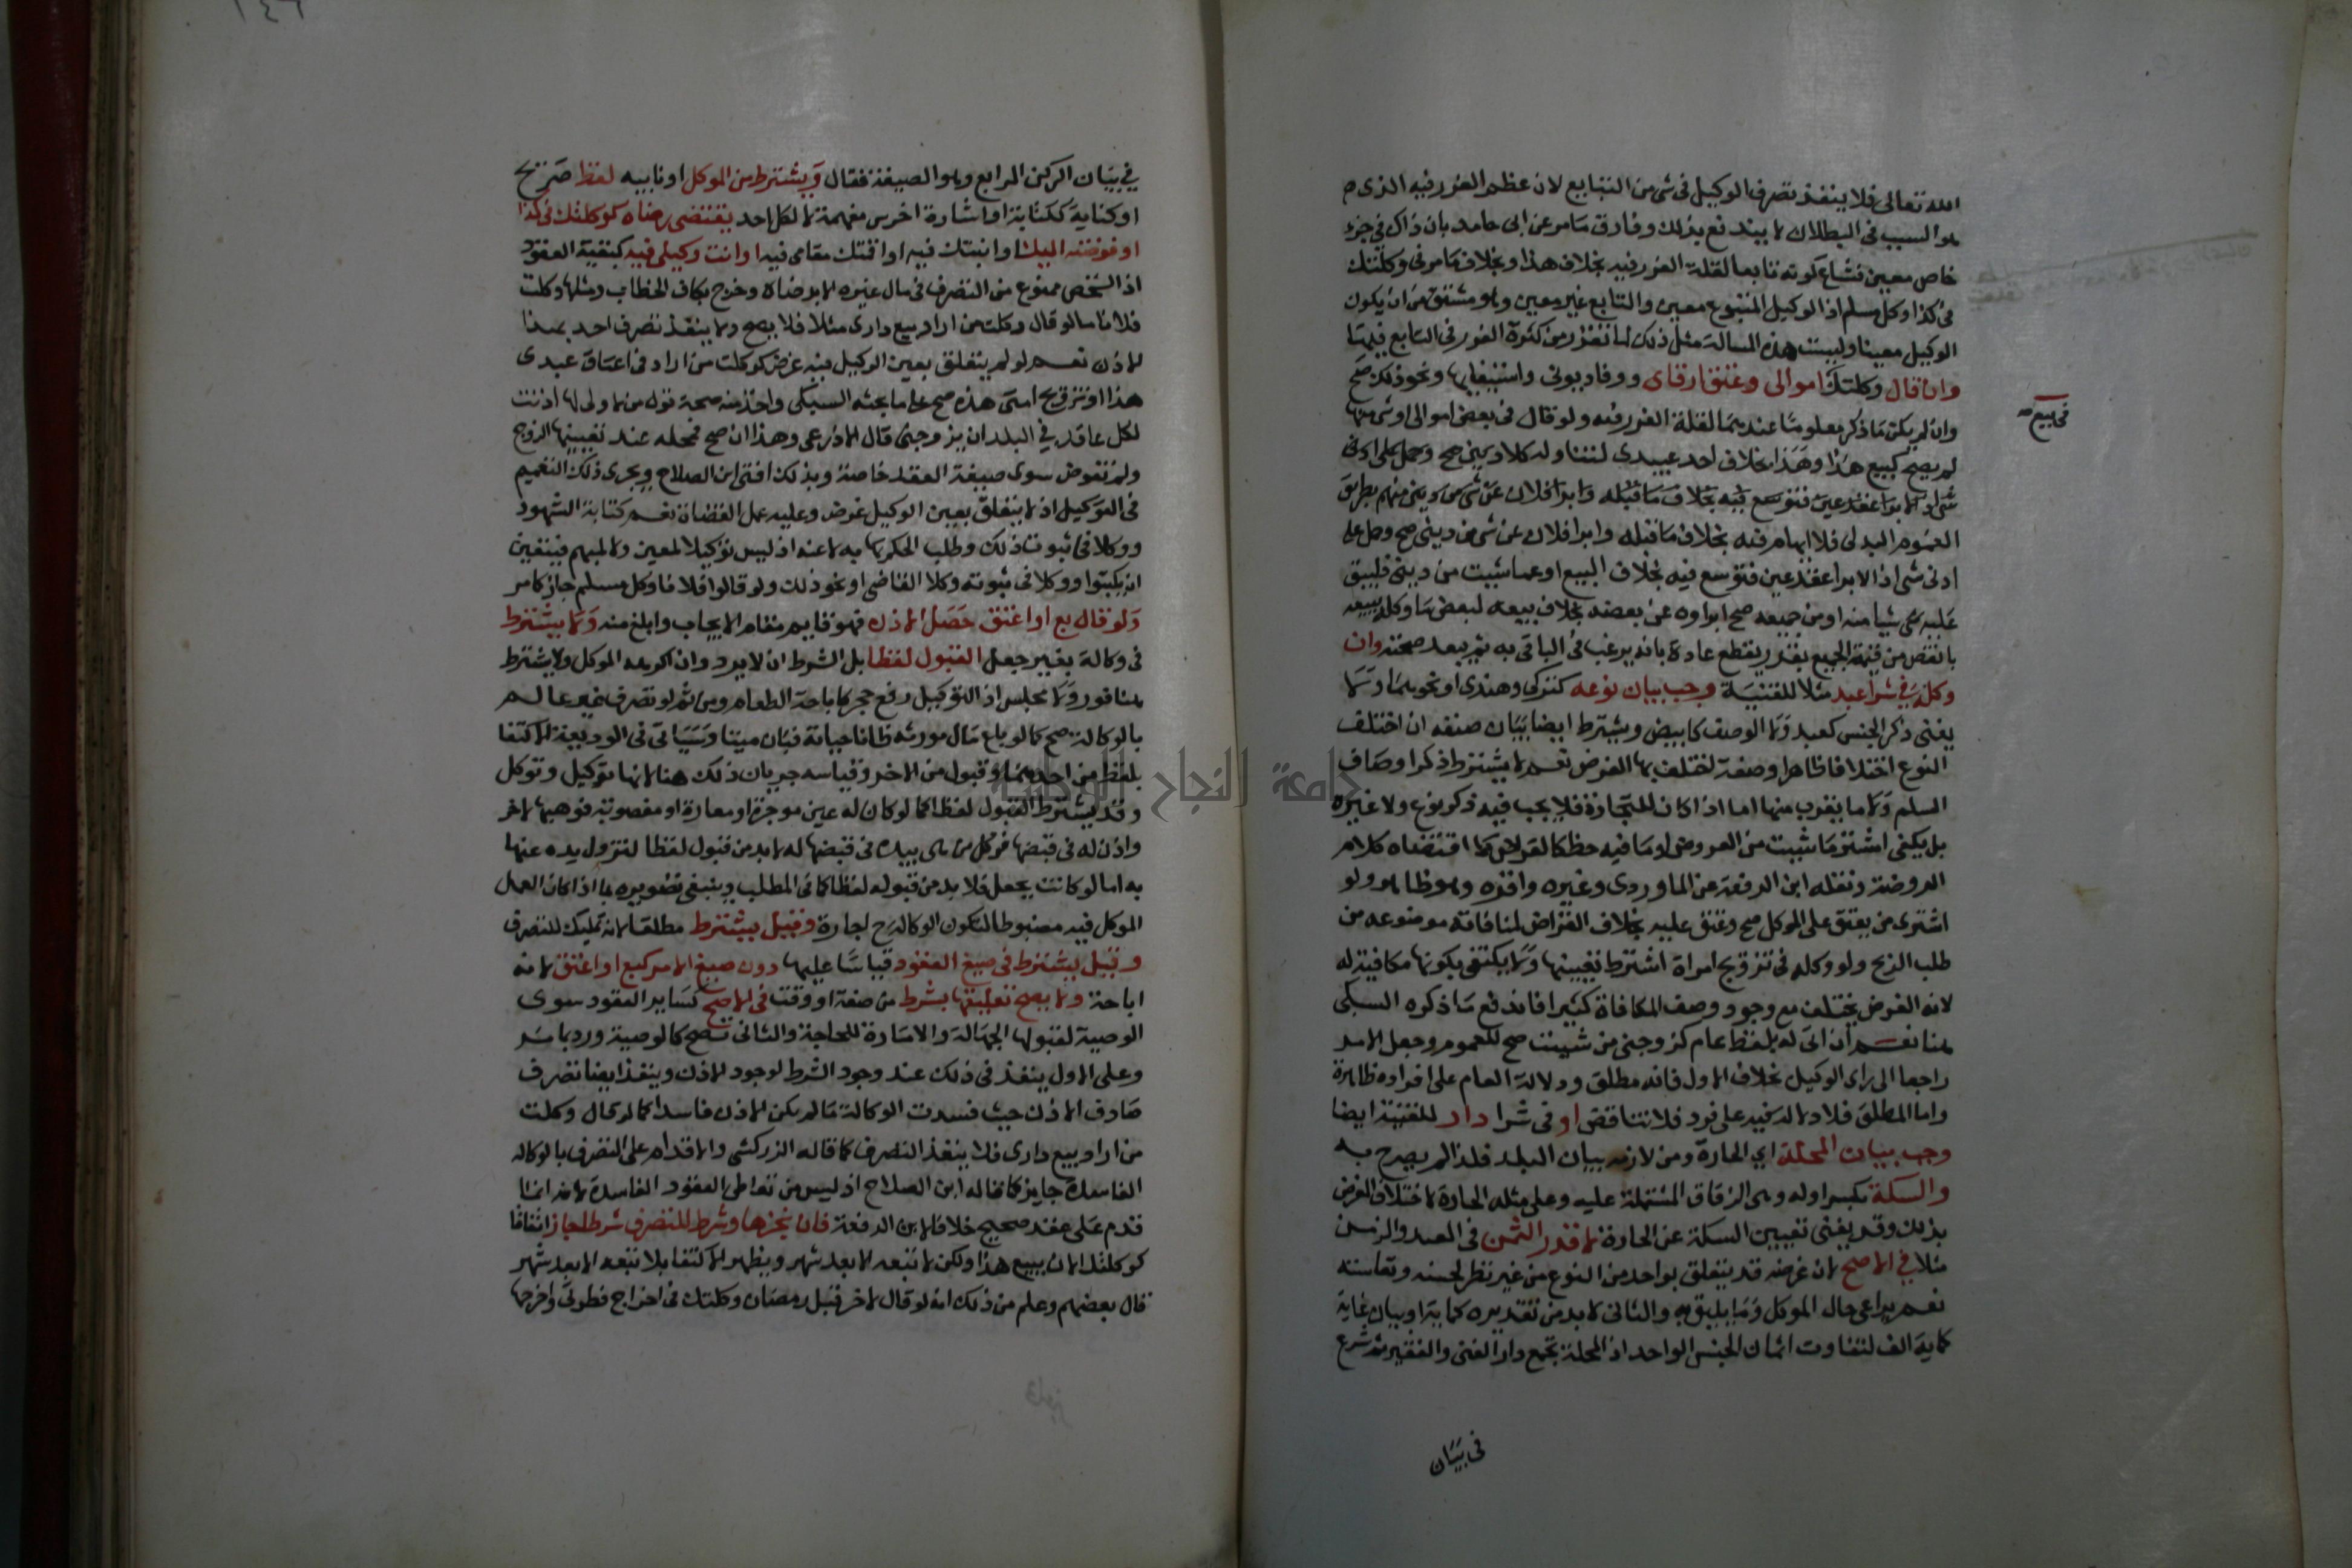 الله تعالى فلا ينفذ تصرف الوكيل في شي من التتابيع لان عظم الغرر فيه الذي م
هو السبب في البطلان لا يندفع بذلك وفارق ما مر عن ابي حامد بان ذاك في جزء
خاص معين فشاع كونه تابعا لقلة الغرر فيه بخلاف هذا وبخلاف ما مر في وكلتك
في كذا وكل مسلم اذ الوكيل المتبوع معين والتابع غير معين وهو مشتق من ان يكون
الوكيل معينا وليست هذه المسالة مثل ذلك لما تقرر من كثرة الغرر في التابع فيها
وان قال وكلتك اموالي وعتق ارقاى ووفا ديوني واستيفايها ونحو ذلك صح
في بيع صح
وان لم يكن ما ذكر معلوما عندهما لقلة الغرر فيه ولو قال في بعض اموالي او شي منها
لم يصح كبيع هذا وهذا بخلاف احد عبيدي لتناوله كلا وبيني صح وحمل على ادنى
شي او الابرا عقد عين فتوسع فيه بخلاف ما قبله وابرا فلان عن شي من ديني منهم بطريق
العموم البدلي فلا ابهام فيه بخلاف ما قبله وابرا فلان عن شي من ديني صح وحمل على
ادنى شي اذ الابرا عقد عين فتوسع فيه بخلاف البيع او عما شيت من ديني فليبق
عليه شيا منه او من جميعه صح ابراوه عن بعضه بخلاف بيعه لبعض ما وكله ببيعه
بانقص من قيمة الجميع بقدر يقطع عادة بانه يرغب في الباقي به ثم بعد صحته وان
وكله في شرا عبد مثلا للقنية وجب بيان نوعه كتركي وهندي او نحوهما ولا
يغني ذكر الجنس كعبد ولا الوصف كابيض ويشترط ايضا بيان صنفه ان اختلف
النوع اختلافا ظاهرا وصفة اختلف بها الغرض نعم لا يشترط ذكر اوصاف
السلم ولا ما يقرب منها اما اذا كان للتجارة فلا يجب فيه ذكر نوع ولا غيره
بل يكفي اشتر ما شيت من العروض او ما فيه حظ كالقراض كما اقتضاه كلام
الروضة ونقله ابن الرفعة عن الماوردي وغيره واقره وهو ظاهر ولو
اشترى من يعتق على الموكل صح وعتق عليه بخلاف القراض لمنافاته موضوعه من
طلب الربح ولو وكله في تزويج امراة اشترط تعيينها ولا يكتفى بكونها مكافية له
لان الغرض يختلف مع وجود وصف المكافاة كثيرا فاندفع ما ذكره السبكي
هنا نعم ان اتى له بلفظ عام كزوجني من شيت صح للعموم وجعل الامر
راجعا الى راى الوكيل بخلاف الاول فانه مطلق ودلالة العام على افراده ظاهرة
واما المطلق فلا دلالة فيه على فرد فلا تناقض او في شرا دار للقنية ايضا
وجب بيان المحلة اي الحارة ومن لازمه بيان البلد فلذا لم يصرح به
والسكة بكسر اوله وهى الزقاق المشتملة عليه وعلى مثله الحارة لاختلاف الغرض
بذلك وقد يغني تعيين السكة عن الحارة لا قدر الثمن في العبد والزمن
مثلا في الاصح لان غرضه قد يتعلق بواحد من النوع من غير نظر لخسته ونفاسته
نعم يراعى حال الموكل وما يليق به والثاني لا بد من تقديره كماية او بيان غاية
كماية الف لتفاوت اثمان الجنس الواحد اذ المحلة تجمع دار الغني والفقير ثم شرع
في بيان
في بيان الركن الرابع وهو الصيغة فقال ويشترط من الموكل او نايبه لفظ صريح
او كناية ككتابة او اشارة اخرس مفهمة لا لكل احد يقتضي رضاه كوكلتك في كذا
او فوضته اليك او انبتك فيه او اقمتك مقامي فيه او انت وكيلي فيه كبقية العقود
اذ الشخص ممنوع من التصرف في مال غيره الا برضاه وخرج بكاف الخطاب ومثلها وكلت
فلانا ما لو قال وكلت من اراد بيع داري مثلا فلا يصح ولا ينفذ تصرف احد بهذا
الاذن نعم لو لم يتعلق بعين الوكيل فيه غرض كوكلت من اراد في اعتاق عبدي
هذا او تزويج امتي هذه صح على ما بحثه السبكي واخذ منه صحة قول من لا ولي لها اذنت
لكل عاقد في البلد ان يزوجني قال الاذرعي وهذا ان صح فمحله عند تعيينها الزوج
ولم تفوض سوى صيغة العقد خاصة وبذلك افتى ابن الصلاح ويجري ذلك التعميم
في التوكيل اذ لا يتعلق بعين الوكيل غرض وعليه عمل القضاة نعم كتابة الشهود
ووكلا في ثبوت ذلك وطلب الحكم بها به لاعنه اذ ليس توكيلا لمعين ولا لمبهم فيتعين
ان يكتبوا ووكلا في ثبوته وكلا القاضي او نحو ذلك ولو قالوا فلانا وكل مسلم جاز كما مر
ولو قال بع او اعتق حصل الاذن فهو قايم مقام الايجاب وابلغ منه ولا يشترط
في وكالة بغير جعل القبول لفظا بل الشرط ان لا يرد وان اكرهه الموكل ولا يشترط
هنا فور ولا مجلس اذ التوكيل رفع حجر كاباحة الطعام ومن ثم لو تصرف غير عالم
بالوكالة صح كما لو باع مال مورثه ظانا حياته فبان ميتا وسياتي في الوديعة الاكتفا
بلفظ من احدهما وقبول من الاخر وقياسه جريان ذلك هنا لانها توكيل وتوكل
وقد يشترط القبول لفظا كما لو كان له عين موجرة او معارة او مغصوبة فوهبها لاخر
واذن له في قبضها فوكل من هى بيده في قبضها له لا بد من قبول لفظا لتزول يده عنها
به اما لو كانت بجعل فلا بد من قبوله لفظا كما في المطلب وينبغي تصويره بما اذا كان العمل
الموكل فيه مضبوطا لتكون الوكالة ح اجارة وقيل يشترط مطلقا لانه تمليك للتصرف
وقيل يشترط في صيغ العقود قياسا عليها دون صيغ الامر كبع او اعتق لانه
اباحة ولا يصح تعليقها بشرط من صفة او وقت في الاصح كساير العقود سوى
الوصية لقبولها الجهالة والامارة للحاجة والثاني تصح كالوصية ورد بما مر
وعلى الاول ينفذ في ذلك عند وجود الشرط لوجود الاذن وينفذ ايضا تصرف
صادف الاذن حيث فسدت الوكالة ما لم يكن الاذن فاسدا كما لو قال وكلت
من اراد بيع داري فلا ينفذ التصرف كما قاله الزركشي والاقدام على التصرف بالوكالة
الفاسدة جايز كما قاله ابن الصلاح اذ ليس من تعاطي العقود الفاسدة لانه انما
قدم على عقد صحيح خلافا لابن الرفعة فان نجزها وشرط للتصرف شرطا جاز اتفاقا
كوكلتك الان ببيع هذا ولكن لا تبعه الا بعد شهر ويظهر الاكتفا بلا تبعه الا بعد شهر
قال بعضهم وعلم من ذلك انه لو قال لاخر قبل رمضان وكلتك في اخراج فطرتي واخرجها
جامعة النجاح الوطنية